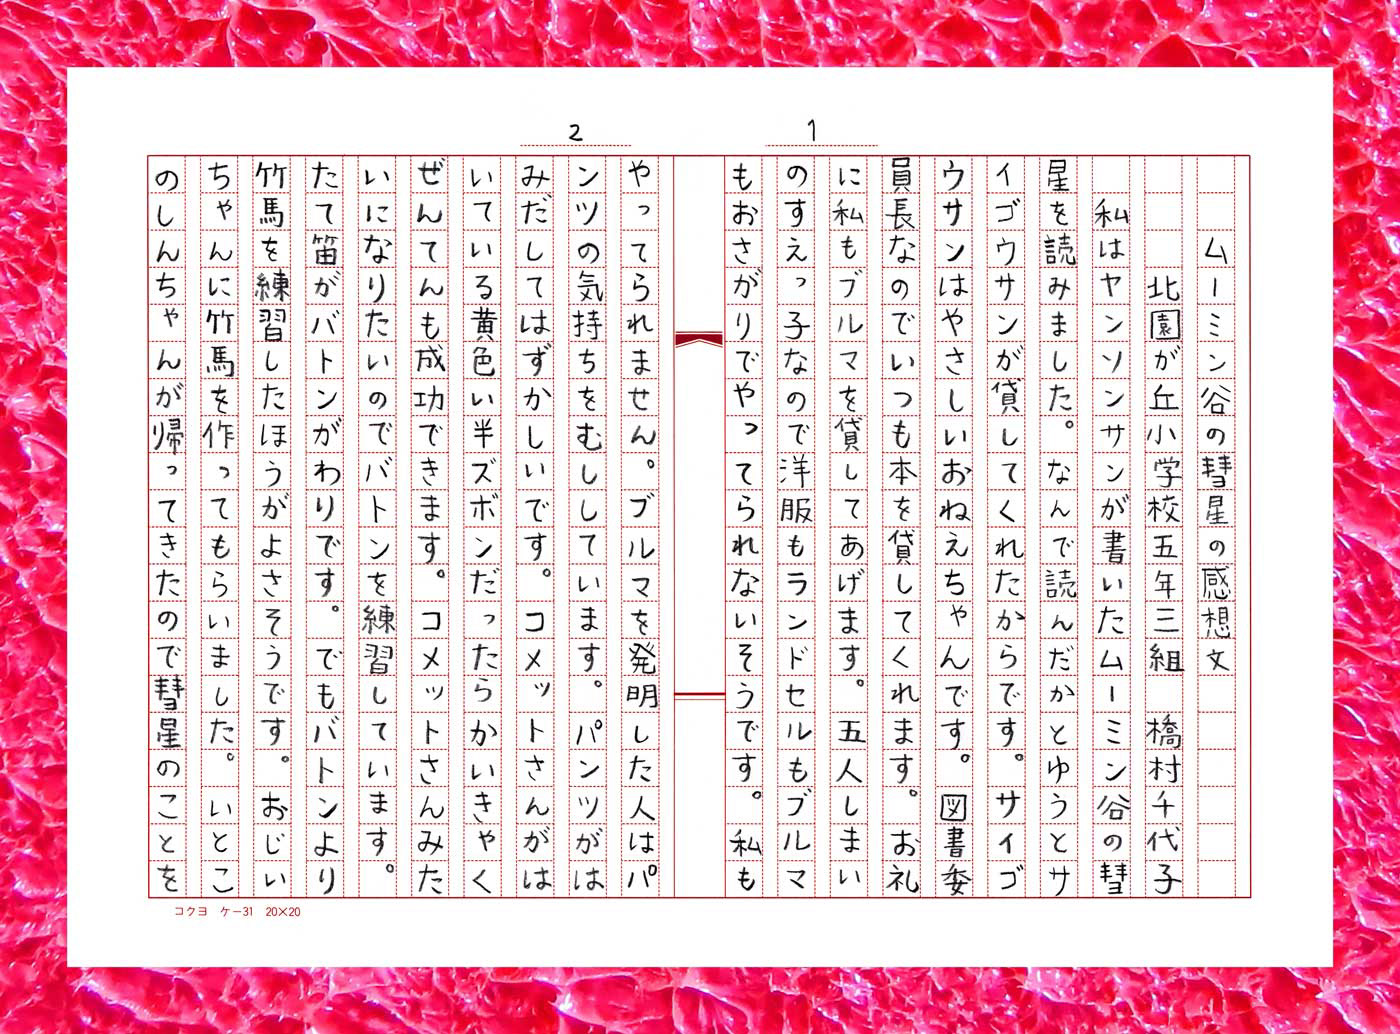 1
ムーミン谷の彗星の感想文
北園が丘小学校五年三組　橋村千代子
私はヤンソンサンが書いたムーミン谷の彗
星を読みました。なんで読んだかとゆうとサ
イゴウサンが貸してくれたからです。サイゴ
ウサンはやさしいおねえちゃんです。図書委
員長なのでいつも本を貸してくれます。お礼
に私もブルマを貸してあげます。五人しまい
のすえっ子なので洋服もランドセルもブルマ
もおさがりでやってられないそうです。私も
2
やってられません。ブルマを発明した人はパ
ンツの気持ちをむししています。パンツがは
みだしてはずかしいです。コメットさんがは
いている黄色い半ズボンだったらかいきゃく
ぜんてんも成功できます。コメットさんみた
いになりたいのでバトンを練習しています。
たて笛がバトンがわりです。でもバトンより
竹馬を練習したほうがよさそうです。おじい
ちゃんに竹馬を作ってもらいました。いとこ
のしんちゃんが帰ってきたので彗星のことを
コクヨ　ケー31　20×20